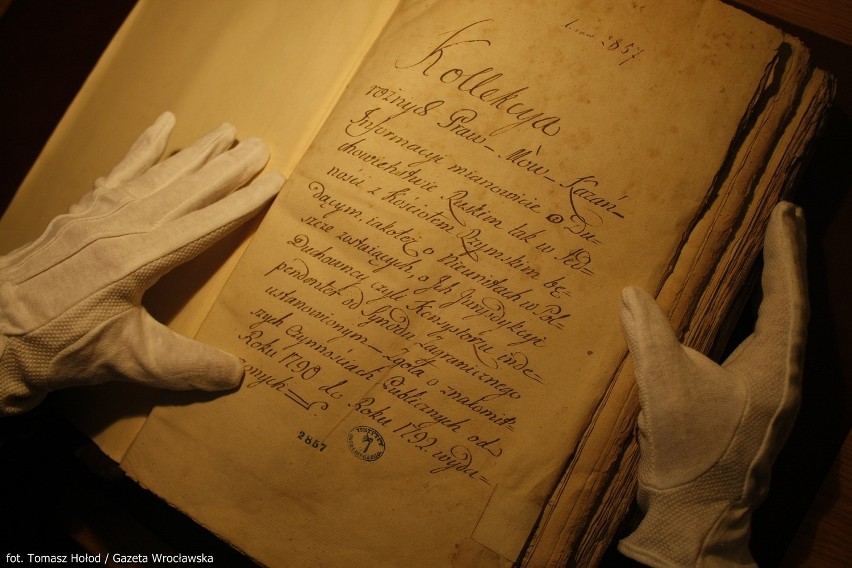 2857
Kollekcya
rożnych Praw– Mów– Kazań–
Informacyi mianowicie o Du–
chowieństwie Ruskim tak w Jed–
ności z Kościołem Rzymskim bę–
dącym, iakoteż o Nieunitach w Pol–
szcze zostaiących, o Ich Juryzdykcyi
Duchowney czyli Konsystorzu inde–
pendenter od Synodu Zagranicznego
ustanowionym– Zgoła o znakomit–
szych Czynnościach Publicznych od
Roku 1790 do Roku 1792 wyda–
rzonych
2857
fot. Tomasz Hołod / Gazeta Wrocławska